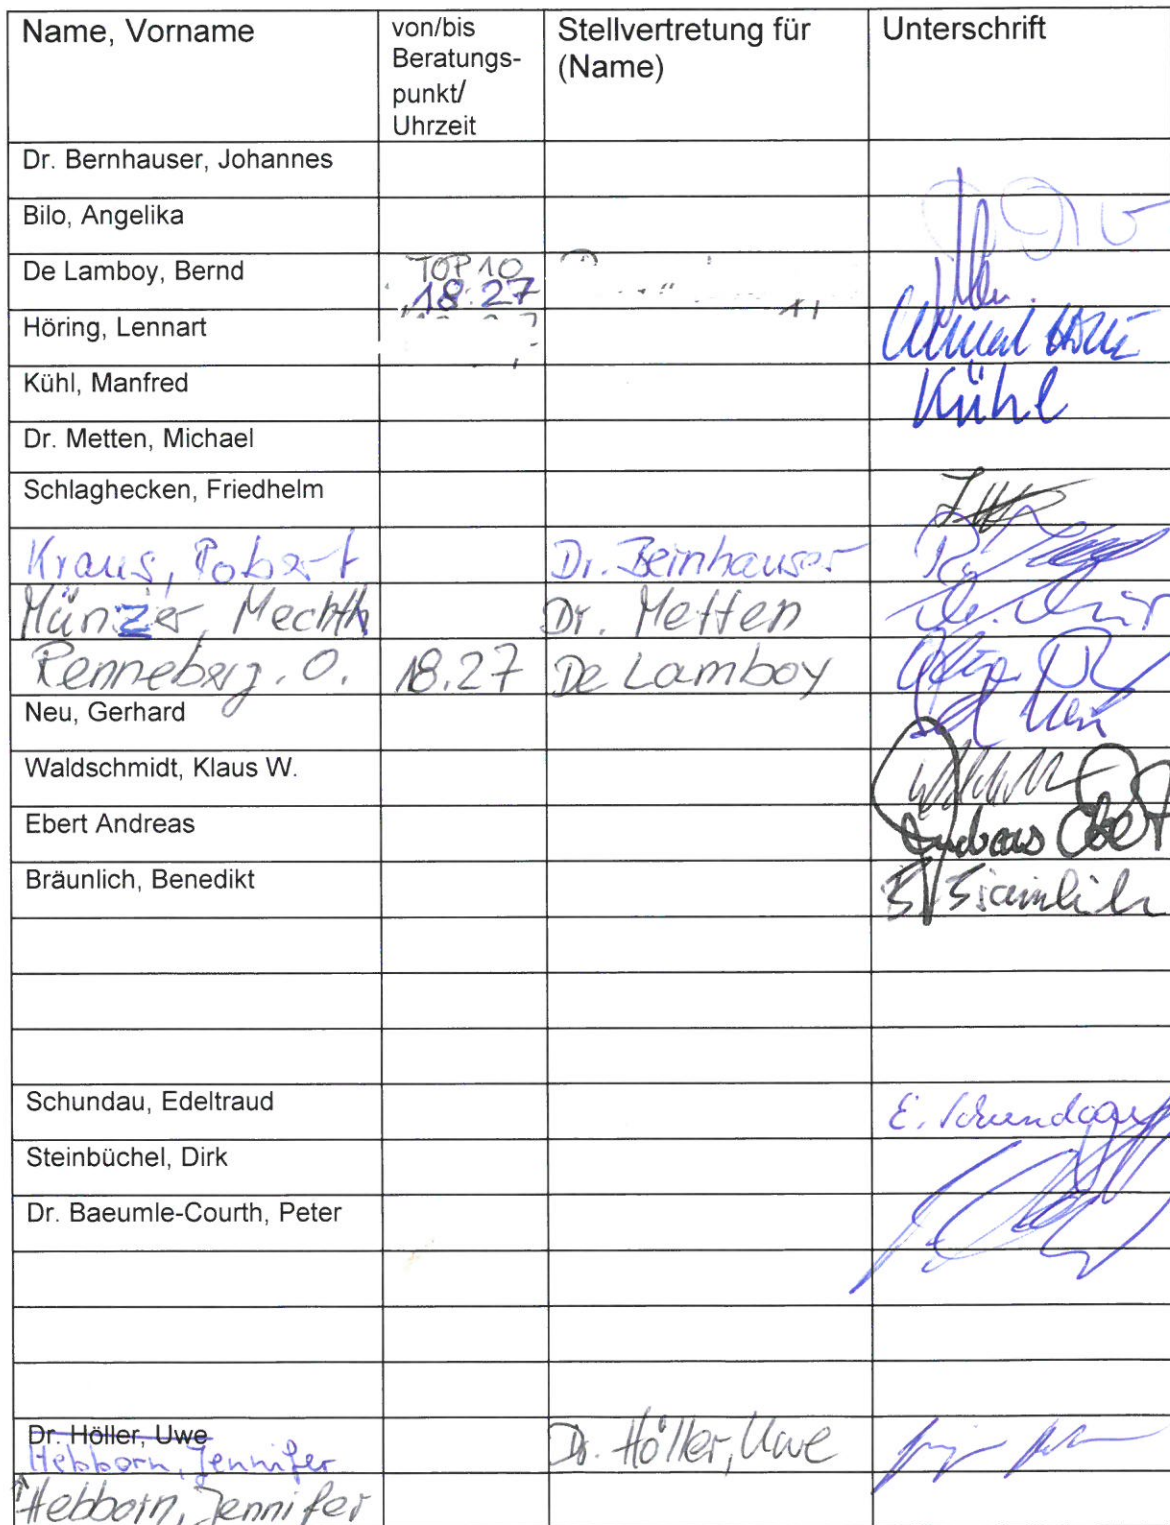 Name, Vorname von/bis Beratungs- punkt/ Uhrzeit Stellvertretung für (Name) Unterschrift
Dr. Bernhauser, Johannes
Bilo, Angelika
De Lamboy, Bernd TOP 10 18.27
Höring, Lennart
Kühl, Manfred Kühl
Dr. Metten, Michael
Schlaghecken, Friedhelm
Kraus, Robert Dr. Bernhauser
Münzer, Mechth Dr. Metten
Renneberg. O. 18.27 De Lamboy
Neu, Gerhard
Waldschmidt, Klaus W.
Ebert Andreas Andreas Ebert
Bräunlich, Benedikt B. Bräunlich
Schundau, Edeltraud E. Schundau
Steinbüchel, Dirk
Dr. Baeumle-Courth, Peter
Dr. Höller, Uwe Dr. Höller, Uwe
Hebborn, Jennifer
Hebborn, Jennifer